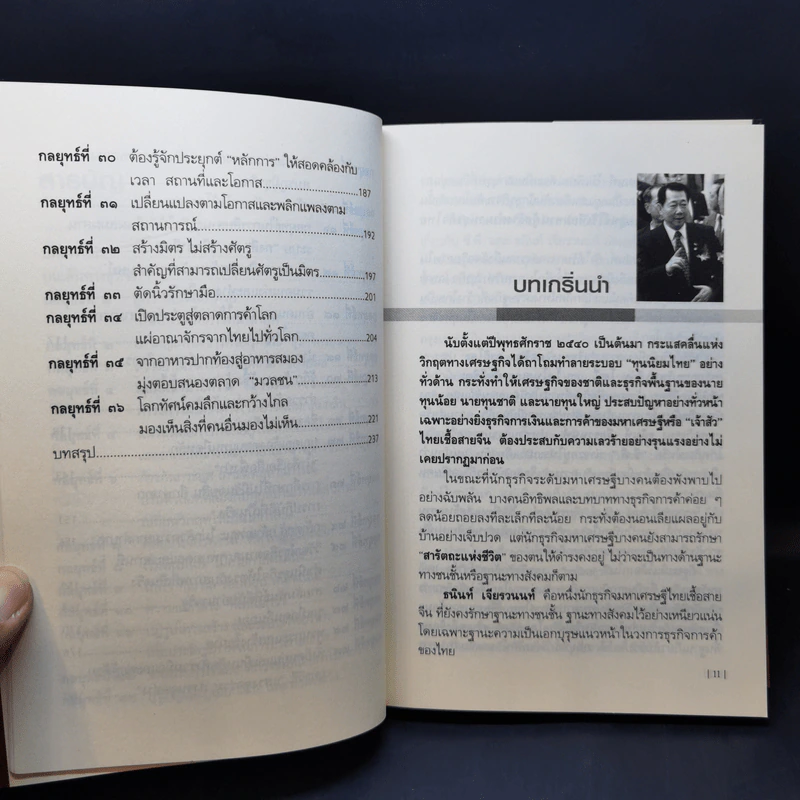 กลยุทธ์ที่ ๓๐ ต้องรู้จักประยุกต์ "หลักการ" ให้สอดคล้องกับ
เวลา สถานที่และโอกาส..............................187
กลยุทธ์ที่ ๓๑ เปลี่ยนแปลงตามโอกาสและพลิกแพลงตาม
สถานการณ์..............................192
กลยุทธ์ที่ ๓๒ สร้างมิตร ไม่สร้างศัตรู
สำคัญที่สามารถเปลี่ยนศัตรูเป็นมิตร...............197
กลยุทธ์ที่ ๓๓ ตัดนิ้วรักษามือ..............................201
กลยุทธ์ที่ ๓๔ เปิดประตูสู่ตลาดการค้าโลก
แผ่อาณาจักรจากไทยไปทั่วโลก....................204
กลยุทธ์ที่ ๓๕ จากอาหารปากท้องสู่อาหารสมอง
มุ่งตอบสนองตลาด "มวลชน"....................213
กลยุทธ์ที่ ๓๖ โลกทัศน์คมลึกและกว้างไกล
มองเห็นสิ่งที่คนอื่นมองไม่เห็น....................221
บทสรุป..............................237
บทเกริ่นนำ
นับตั้งแต่ปีพุทธศักราช ๒๕๔๐ เป็นต้นมา กระแสคลื่นแห่ง
วิกฤตทางเศรษฐกิจได้ถาโถมทำลายระบอบ "ทุนนิยมไทย" อย่าง
ทั่วด้าน กระทั่งทำให้เศรษฐกิจของชาติและธุรกิจพื้นฐานของนาย
ทุนน้อย นายทุนชาติ และนายทุนใหญ่ ประสบปัญหาอย่างทั่วหน้า
เฉพาะอย่างยิ่งธุรกิจการเงินและการค้าของมหาเศรษฐีหรือ "เจ้าสัว"
ไทยเชื้อสายจีน ต้องประสบกับความเลวร้ายอย่างรุนแรงอย่างไม่
เคยปรากฏมาก่อน
ในขณะที่นักธุรกิจระดับมหาเศรษฐีบางคนต้องพังพาบไป
อย่างฉับพลัน บางคนอิทธิพลและบทบาททางธุรกิจการค้าค่อย ๆ
ลดน้อยถอยลงทีละเล็กทีละน้อย กระทั่งต้องนอนเลียแผลอยู่กับ
บ้านอย่างเจ็บปวด แต่นักธุรกิจมหาเศรษฐีบางคนยังสามารถรักษา
"สารัตถะแห่งชีวิต" ของตนให้ดำรงคงอยู่ ไม่ว่าจะเป็นทางด้านฐานะ
ทางชนชั้นหรือฐานะทางสังคมก็ตาม
ธนินท์ เจียรวนนท์ คือหนึ่งนักธุรกิจมหาเศรษฐีไทยเชื้อสาย
จีน ที่ยังคงรักษาฐานะทางชนชั้น ฐานะทางสังคมไว้อย่างเหนียวแน่น
โดยเฉพาะฐานะความเป็นเอกบุรุษแนวหน้าในวงการธุรกิจการค้า
ของไทย
| 11 |